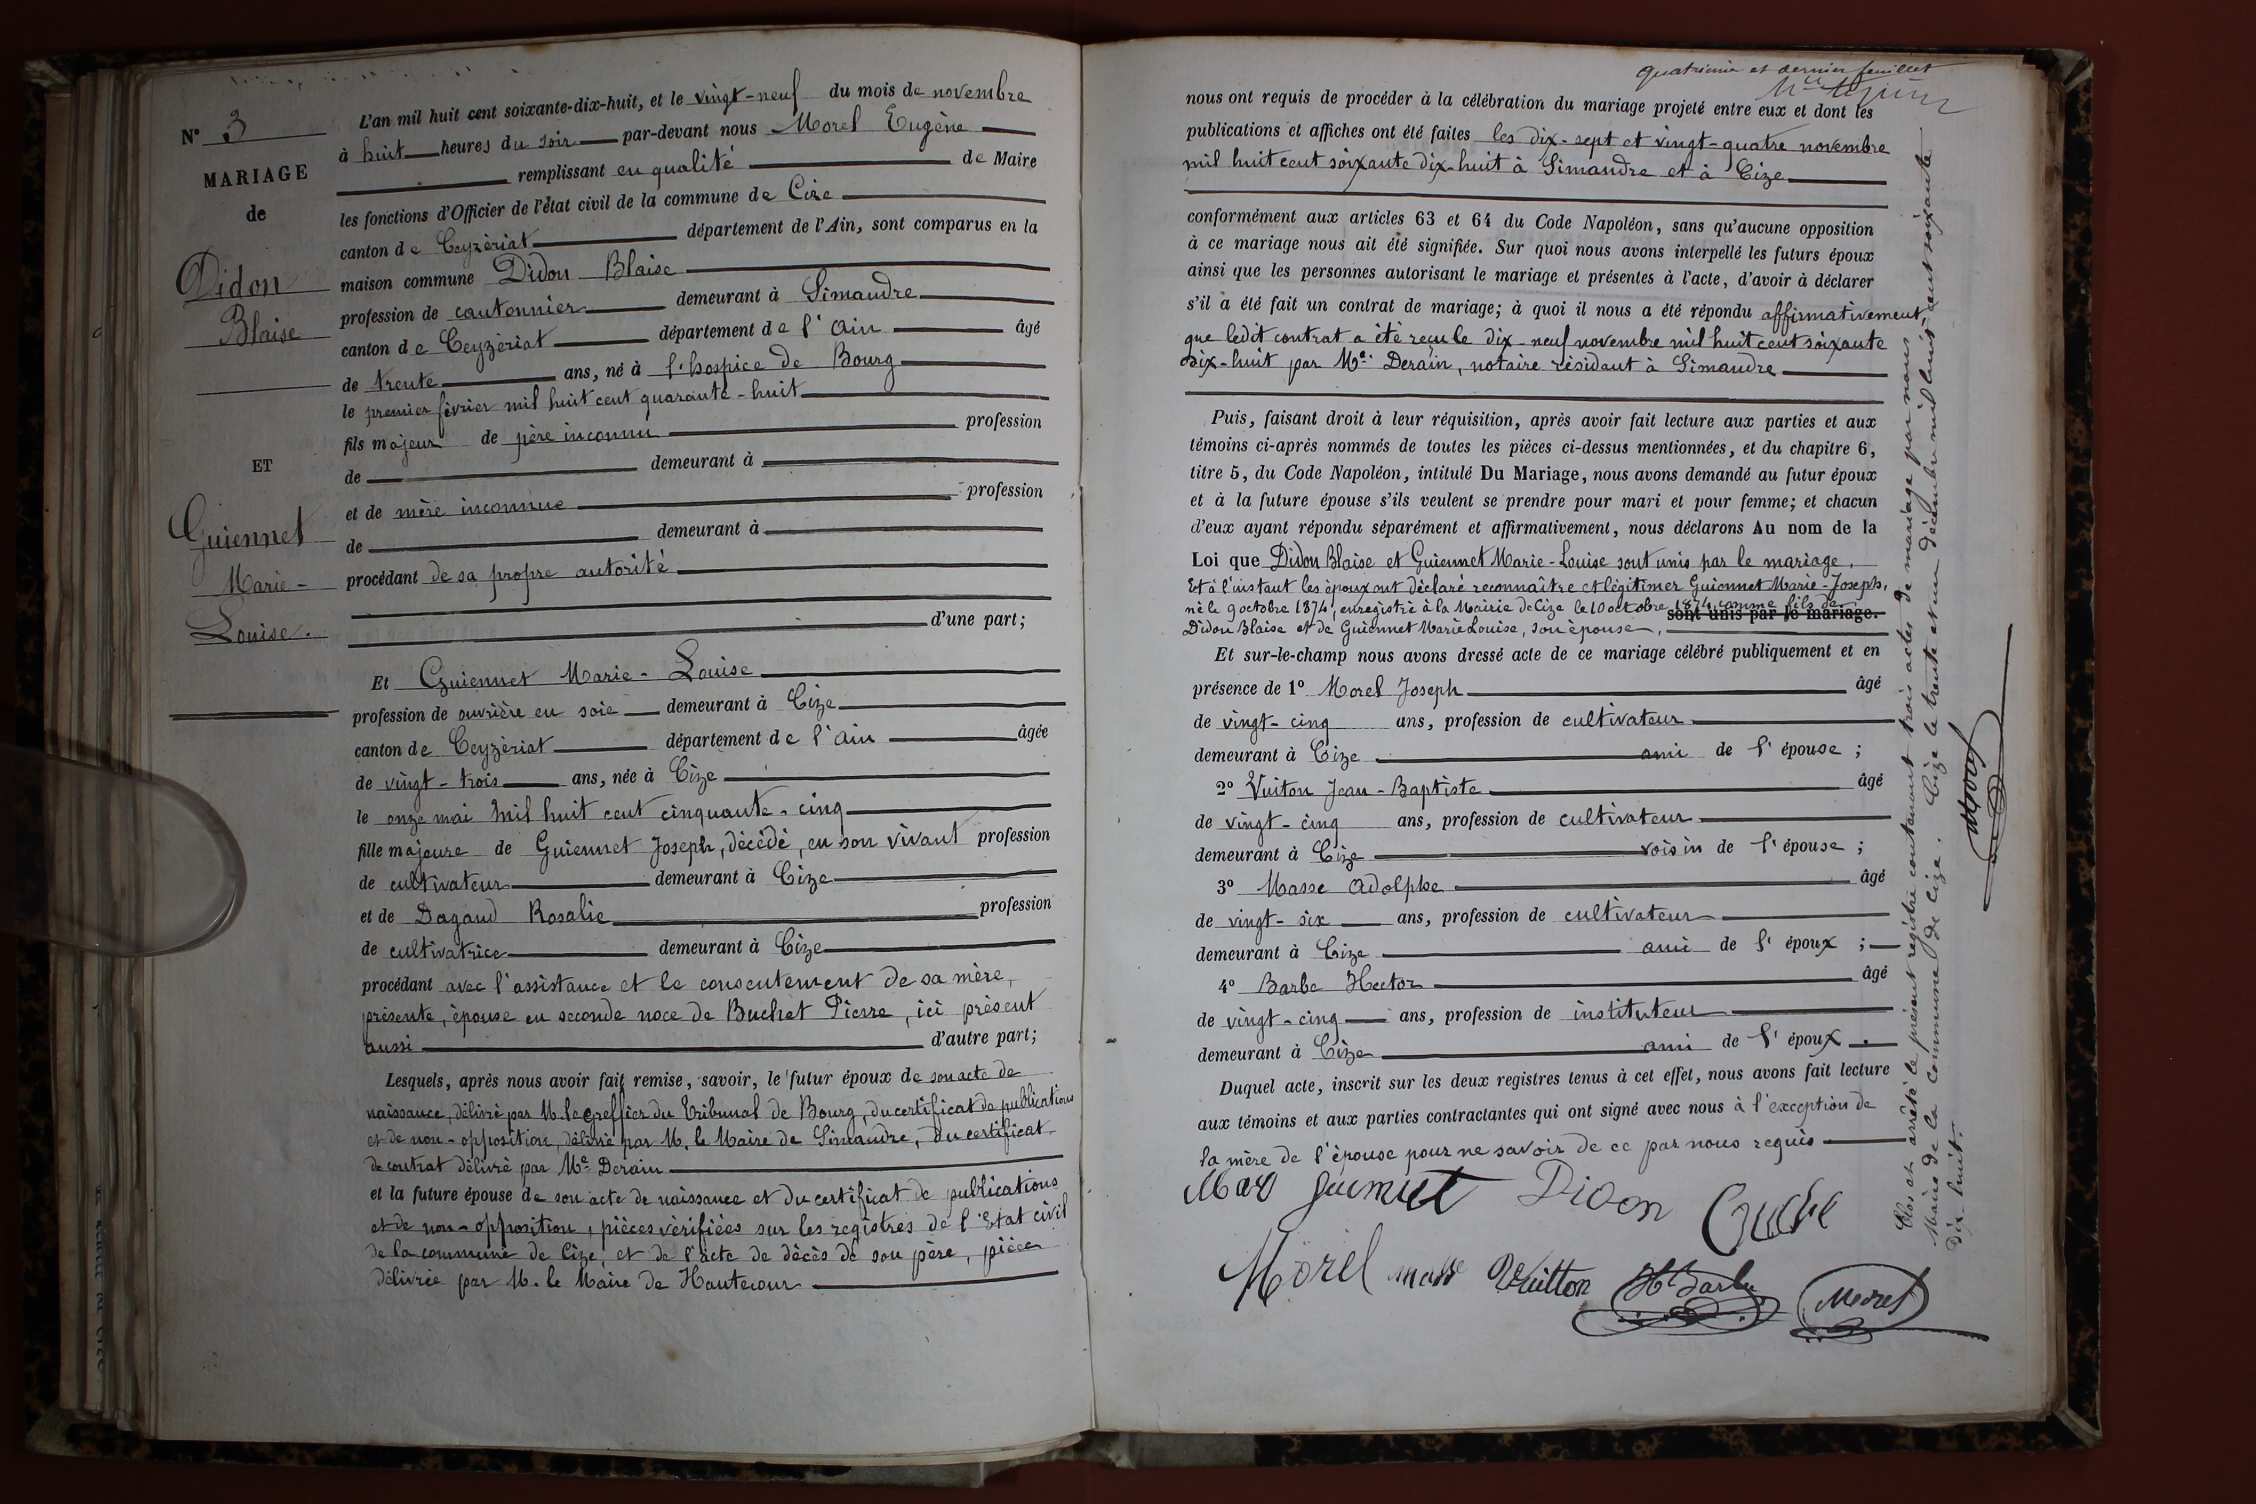 N° 3
MARIAGE
de
Didon
Blaise
ET
Guiennet
Marie-
Louise.
L'an mil huit cent soixante-dix-huit, et le vingt-neuf du mois de novembre
à huit heures du soir par-devant nous Morel Eugène
remplissant en qualité de Maire
les fonctions d'Officier de l'état civil de la commune de Cize
canton de Ceyzériat département de l'Ain, sont comparus en la
maison commune Didon Blaise
profession de cantonnier demeurant à Simandre
canton de Ceyzériat département de l'Ain âgé
de trente ans, né à l'hospice de Bourg
le premier février mil huit cent quarante-huit
fils majeur de père inconnu profession
de demeurant à
et de mère inconnue profession
de demeurant à
procédant de sa propre autorité
d'une part;
Et Guiennet Marie-Louise
profession de ouvrière en soie demeurant à Cize
canton de Ceyzériat département de l'Ain âgée
de vingt-trois ans, née à Cize
le onze mai mil huit cent cinquante-cinq
fille majeure de Guiennet Joseph, décédé, en son vivant profession
de cultivateur demeurant à Cize
et de Dagand Rosalie profession
de cultivatrice demeurant à Cize
procédant avec l'assistance et le consentement de sa mère,
présente, épouse en seconde noce de Buchet Pierre, ici présent
aussi d'autre part;
Lesquels, après nous avoir fait remise, savoir, le futur époux de son acte de
naissance, délivré par M. le greffier du Tribunal de Bourg, du certificat de publications
et de non-opposition, délivré par M. le Maire de Simandre, du certificat
de contrat délivré par Me Derain
et la future épouse de son acte de naissance et du certificat de publications
et de non-opposition, pièces vérifiées sur les registres de l'Etat civil
de la commune de Cize, et de l'acte de décès de son père, pièce
délivrée par M. le Maire de Hautecour
quatrième et dernier feuillet
nous ont requis de procéder à la célébration du mariage projeté entre eux et dont les
publications et affiches ont été faites les dix-sept et vingt-quatre novembre
mil huit cent soixante dix-huit à Simandre et à Cize
conformément aux articles 63 et 64 du Code Napoléon, sans qu'aucune opposition
à ce mariage nous ait été signifiée. Sur quoi nous avons interpellé les futurs époux
ainsi que les personnes autorisant le mariage et présentes à l'acte, d'avoir à déclarer
s'il a été fait un contrat de mariage; à quoi il nous a été répondu affirmativement,
que ledit contrat a été reçu le dix-neuf novembre mil huit cent soixante
dix-huit par Me Derain, notaire résidant à Simandre
Puis, faisant droit à leur réquisition, après avoir fait lecture aux parties et aux
témoins ci-après nommés de toutes les pièces ci-dessus mentionnées, et du chapitre 6,
titre 5, du Code Napoléon, intitulé Du Mariage, nous avons demandé au futur époux
et à la future épouse s'ils veulent se prendre pour mari et pour femme; et chacun
d'eux ayant répondu séparément et affirmativement, nous déclarons Au nom de la
Loi que Didon Blaise et Guiennet Marie-Louise sont unis par le mariage.
Et à l'instant les époux ont déclaré reconnaître et légitimer Guiennet Marie-Joseph,
né le 9 octobre 1874, enregistré à la Mairie de Cize le 10 octobre 1874 comme fils de
sont unis par le mariage.
Didon Blaise et de Guiennet Marie Louise, son épouse.
Et sur-le-champ nous avons dressé acte de ce mariage célébré publiquement et en
présence de 1° Morel Joseph âgé
de vingt-cinq ans, profession de cultivateur
demeurant à Cize ami de l'épouse ;
2° Vuiton Jean-Baptiste âgé
de vingt-cinq ans, profession de cultivateur
demeurant à Cize voisin de l'épouse ;
3° Masse Adolphe âgé
de vingt-six ans, profession de cultivateur
demeurant à Cize ami de l'époux ;
4° Barbe Hector âgé
de vingt-cinq ans, profession de instituteur
demeurant à Cize ami de l'époux.
Duquel acte, inscrit sur les deux registres tenus à cet effet, nous avons fait lecture
aux témoins et aux parties contractantes qui ont signé avec nous à l'exception de
la mère de l'épouse pour ne savoir de ce par nous requis
Didon
Morel masse Vuitton Ht Barbe Morel
Clos et arrêté le présent registre contenant trois actes de mariage par nous
Maire de la commune de Cize. Cize le trente et un décembre mil huit cent soixante
dix-huit.
Morel